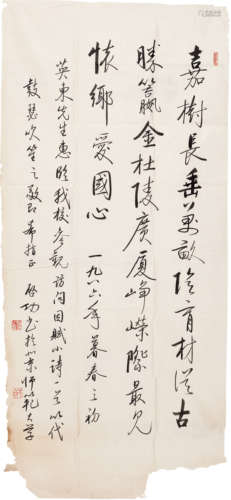 嘉樹長垂萬畝陰育材從古
勝籝金杜陵廣厦崢嶸際最見
懷鄉愛國心 一九八六年暮春之初
英東先生惠臨我校參觀訪問因賦小詩一首以代
鼓瑟吹笙之敬即希指正 啓功書於北京師範大學